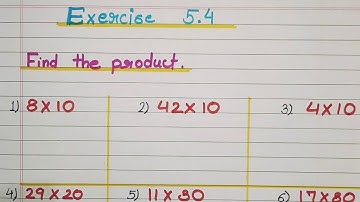 Exercise 5.4
Find the product.
1) 8 X 10 2) 42 X 10 3) 4 X 10
4) 29 X 20 5) 11 X 30 6) 17 X 80